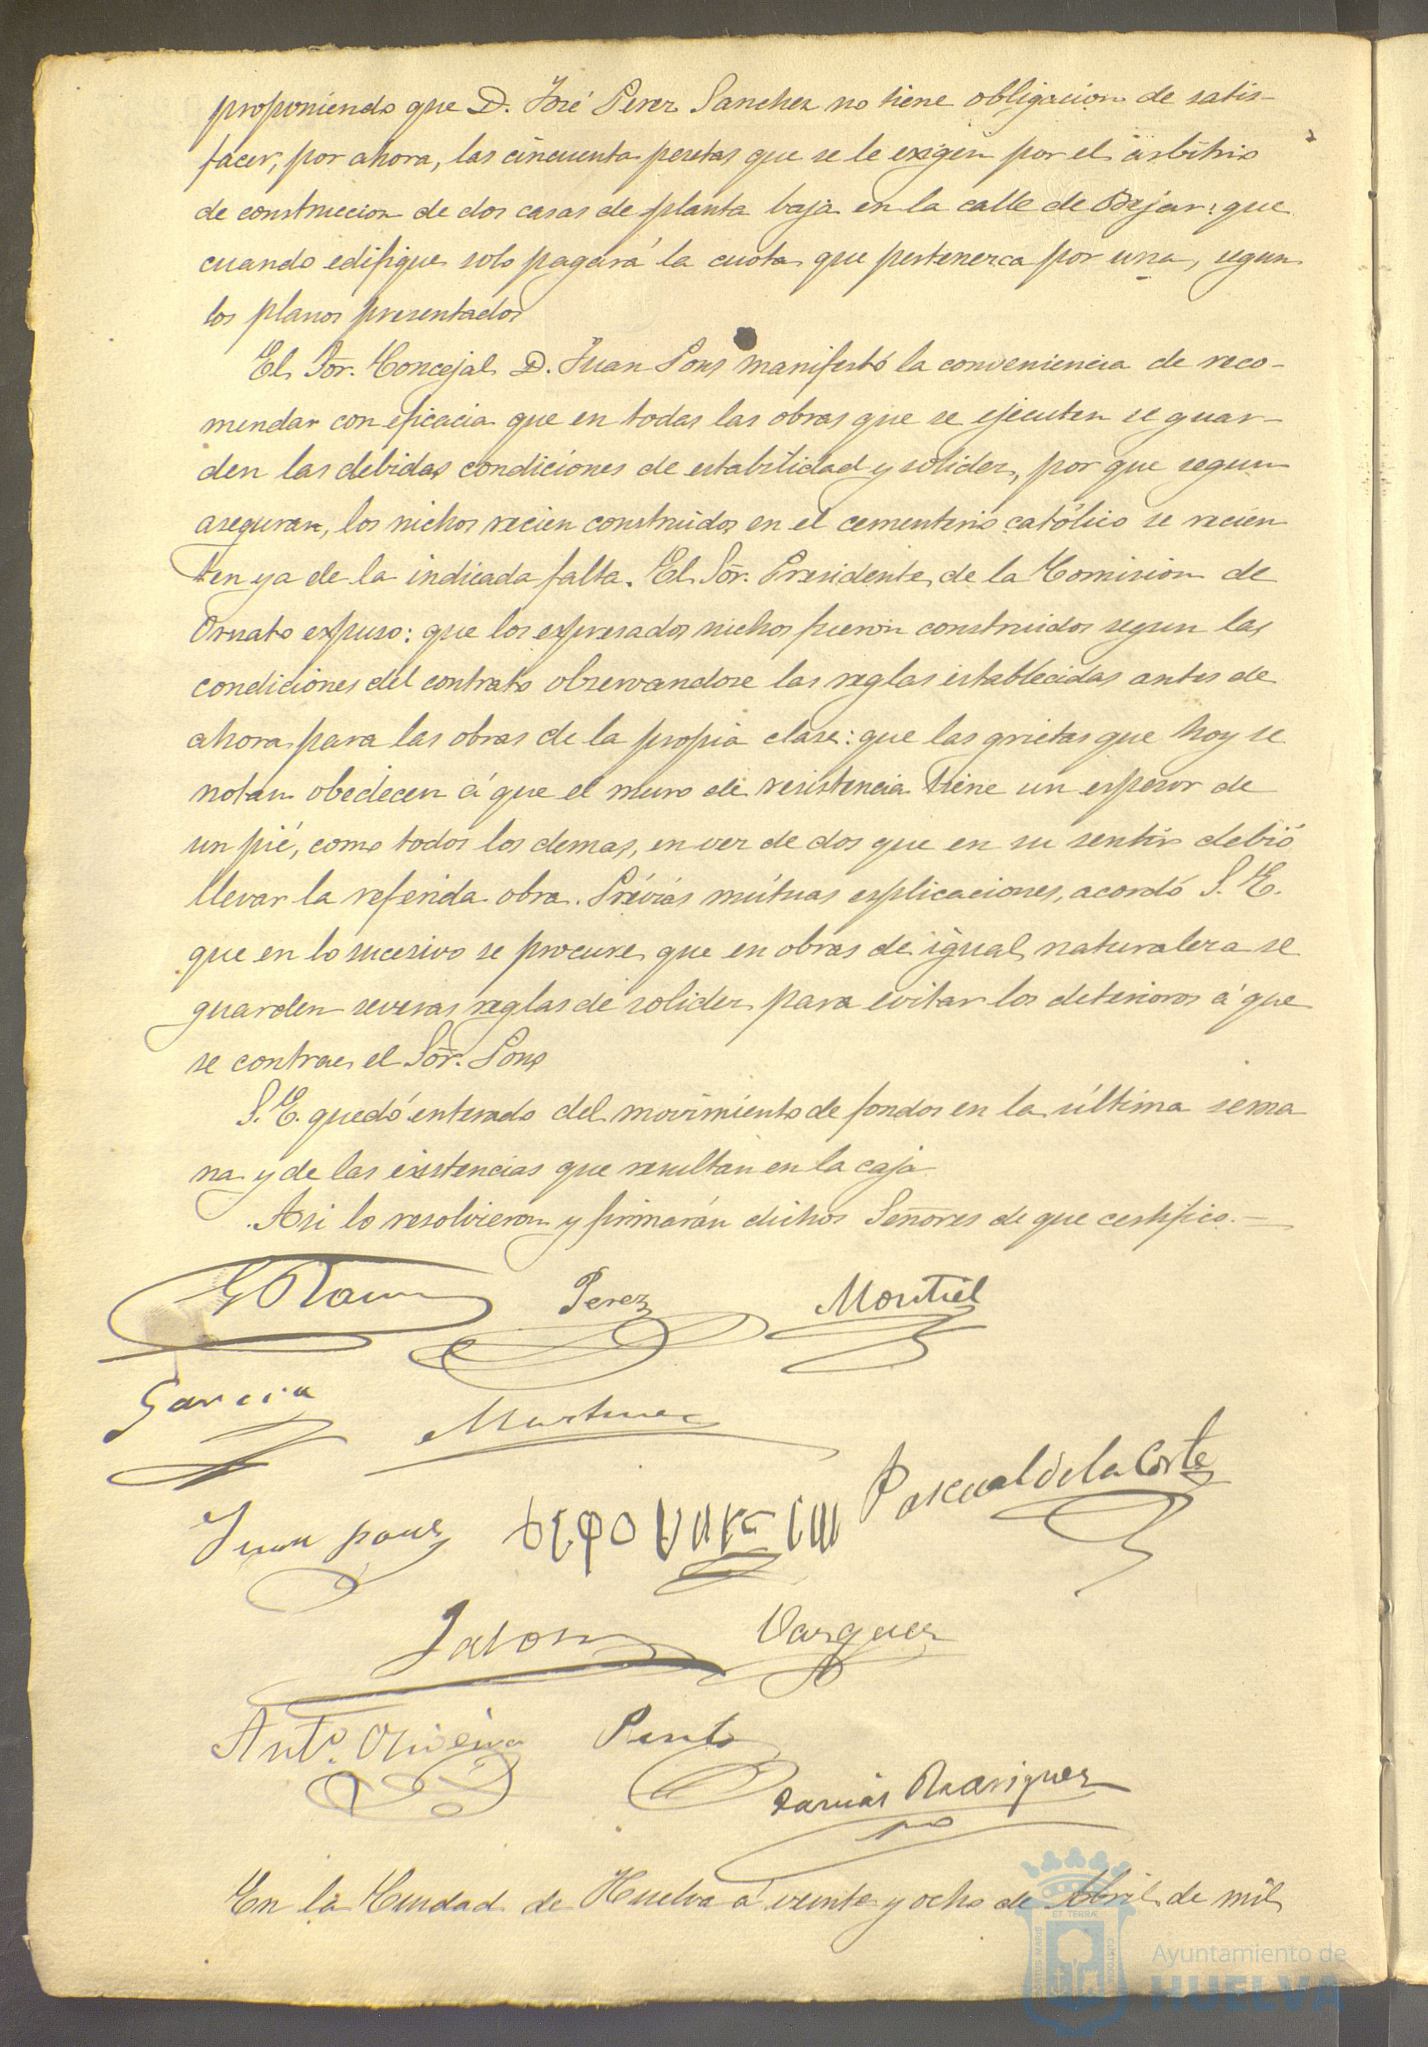 proponiendo que D. José Perez Sanchez no tiene obligacion de satis-
facer, por ahora, las cincuenta pesetas que se le exigen por el arbitrio
de construccion de dos casas de planta baja en la calle de Bejar: que
cuando edifique solo pagará la cuota que pertenezca por una, segun
los planos presentados
El Sõr. Concejal D. Juan Pons manifestó la conveniencia de reco-
mendar con eficacia que en todas las obras que se ejecuten se guar-
den las debidas condiciones de estabilidad y solidez, por que segun
aseguran, los nichos recien construidos en el cementerio católico se recien
ten ya de la indicada falta. El Sõr. Presidente de la Comision de
Ornato expuso: que los expresados nichos fueron construidos segun las
condiciones del contrato observandose las reglas establecidas antes de
ahora para las obras de la propia clase: que las grietas que hoy se
notan obedecen á que el muro de resistencia tiene un espesor de
un pié, como todos los demas, en vez de dos que en su sentir debió
llevar la referida obra. Prévias mútuas esplicaciones, acordó S. E.
que en lo sucesivo se procure que en obras de igual naturaleza se
guarden severas reglas de solidez para evitar los deterioros á que
se contrae el Sõr. Pons
S. E. quedó enterado del movimiento de fondos en la última sema
na y de las existencias que resultan en la caja
Asi lo resolvieron y firmarán dichos Señores de que certifico.—
Perez Montiel
Garcia Martinez
Pascual de la Corte
Juan pons
Vazquez
Antº. Oliveira Pinto
Rodriguez
En la Ciudad de Huelva á veinte y ocho de Abril de mil
Ayuntamiento de
HUELVA